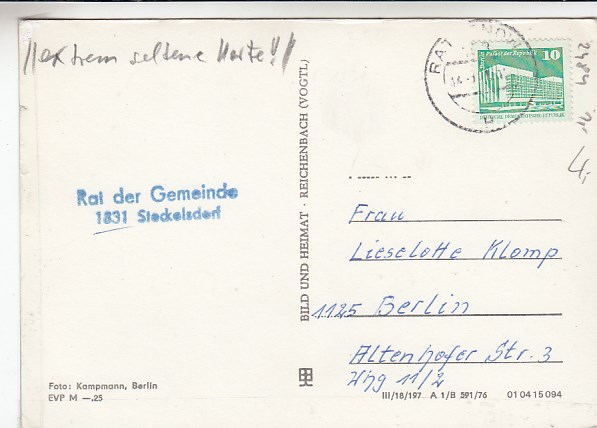 !!extrem seltene Karte!!
Rat der Gemeinde
1831 Steckelsdorf
BILD UND HEIMAT · REICHENBACH (VOGTL)
RAT
10
DEUTSCHE DEMOKRATISCHE REPUBLIK
2484
4,-
Frau
Lieselotte Klomp
1125 Berlin
Altenhofer Str. 3
Whg 11/2
Foto: Kampmann, Berlin
EVP M —.25
III/18/197 A 1/B 591/76 01 04 15 094